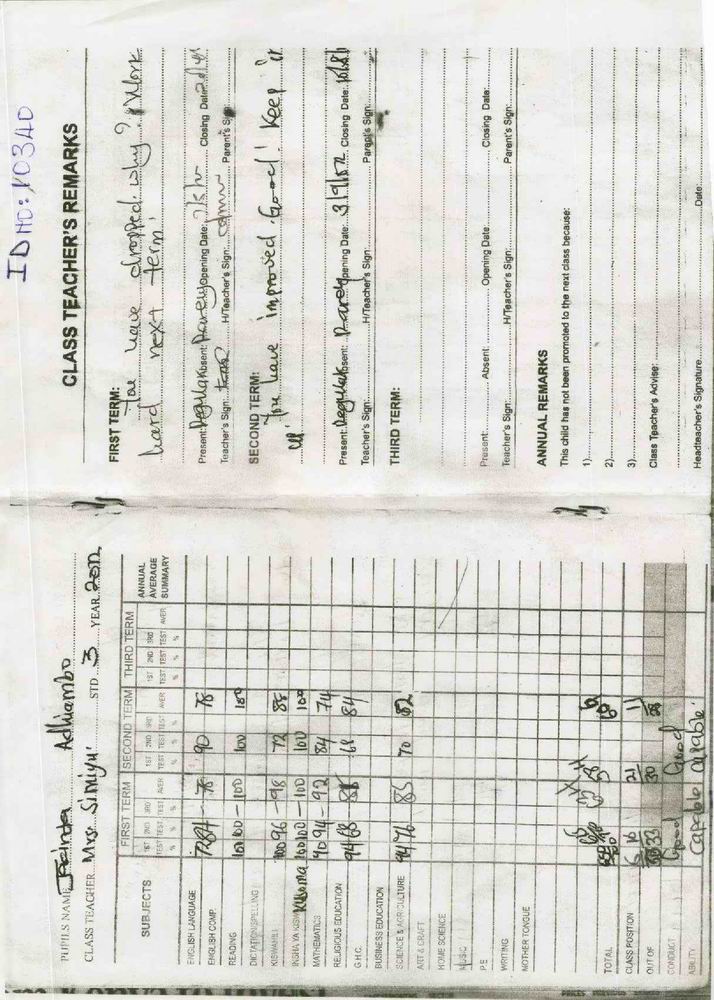 ID NO: K03AD
PUPILS NAME Adhiambo
CLASS TEACHER Mrs. Simiyu STD. 3 YEAR 2012
SUBJECTS FIRST TERM SECOND TERM THIRD TERM ANNUAL AVERAGE SUMMARY
1ST TEST % 2ND TEST % 3RD TEST % AVER 1ST TEST % 2ND TEST % 3RD TEST % AVER 1ST TEST % 2ND TEST % 3RD TEST % AVER
ENGLISH LANGUAGE
ENGLISH COMP. 78 90 78
READING 100 100 - 100 100 100
DICTATION/SPELLING
KISWAHILI 100 96 - 98 72 88
INSHA YA KISW Kusoma 100 100 - 100 100 100
MATHEMATICS 90 94 - 92 84 74
RELIGIOUS EDUCATION 94 68 68 84
G.H.C.
BUSINESS EDUCATION
SCIENCE & AGRICULTURE 94 76 85 70 82
ART & CRAFT
HOME SCIENCE
MUSIC
P.E
WRITING
MOTHER TONGUE
TOTAL
CLASS POSITION 6 16 21 11
OUT OF 33 30
CONDUCT Good Good
ABILITY Capable Capable
CLASS TEACHER'S REMARKS
FIRST TERM:
You have dropped. Why? Work
hard next term.
Present: Regular Absent: Rarely Opening Date: Closing Date:
Teacher's Sign: H/Teacher's Sign: Parent's Sign
SECOND TERM:
You have improved. Good! Keep it
up
Present: Regular Absent: Rarely Opening Date: 3/9/12 Closing Date:
Teacher's Sign: H/Teacher's Sign: Parent's Sign:
THIRD TERM:
Present: Absent: Opening Date: Closing Date:
Teacher's Sign: H/Teacher's Sign: Parent's Sign:
ANNUAL REMARKS
This child has not been promoted to the next class because:
1)
2)
3)
Class Teacher's Advise:
Headteacher's Signature Date: